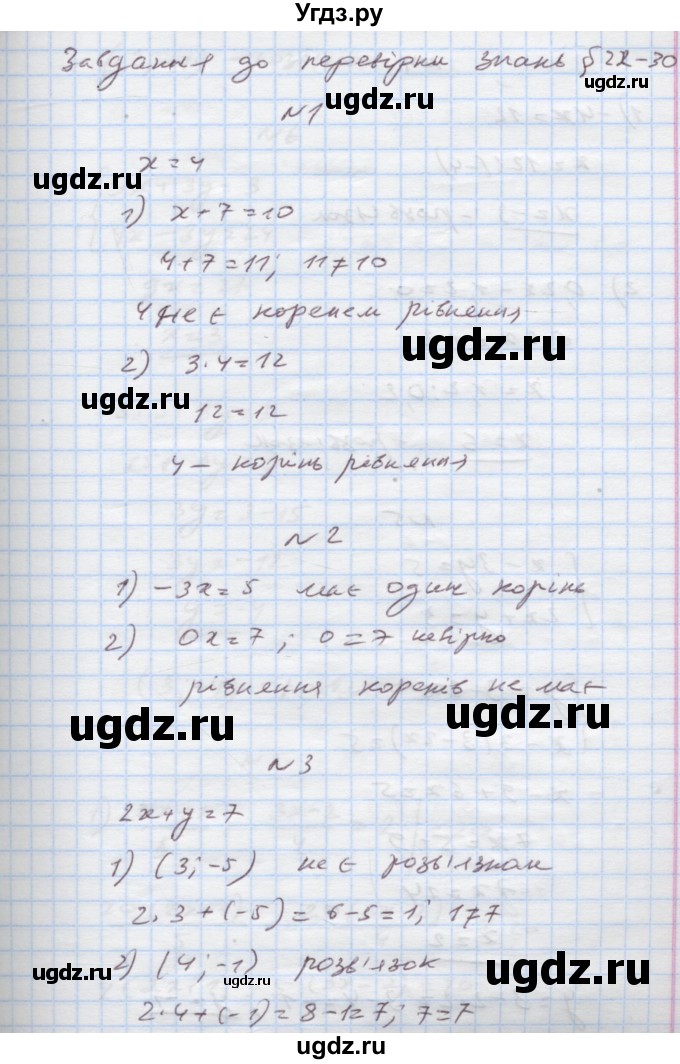 Угдз.ру
Завдання до перевірки знань §22-30
ugdz.ru
№1
x=4
ugdz.ru
1) x+7=10
ugdz.ru
4+7=11; 11≠10
4 не є коренем рівняння
ugdz.ru
2) 3·4=12
ugdz.ru
12=12
4 – корінь рівняння
№2
1) -3x=5 має один корінь
2) 0x=7; 0=7 невірно
рівняння коренів не має
ugdz.ru
ugdz.ru
№3
2x+y=7
1) (3;-5) не є розв'язком
2·3+(-5)=6-5=1; 1≠7
2) (4;-1) розв'язок
ugdz.ru
ugdz.ru
ugdz.ru
2·4+(-1)=8-1=7; 7=7
ugdz.ru